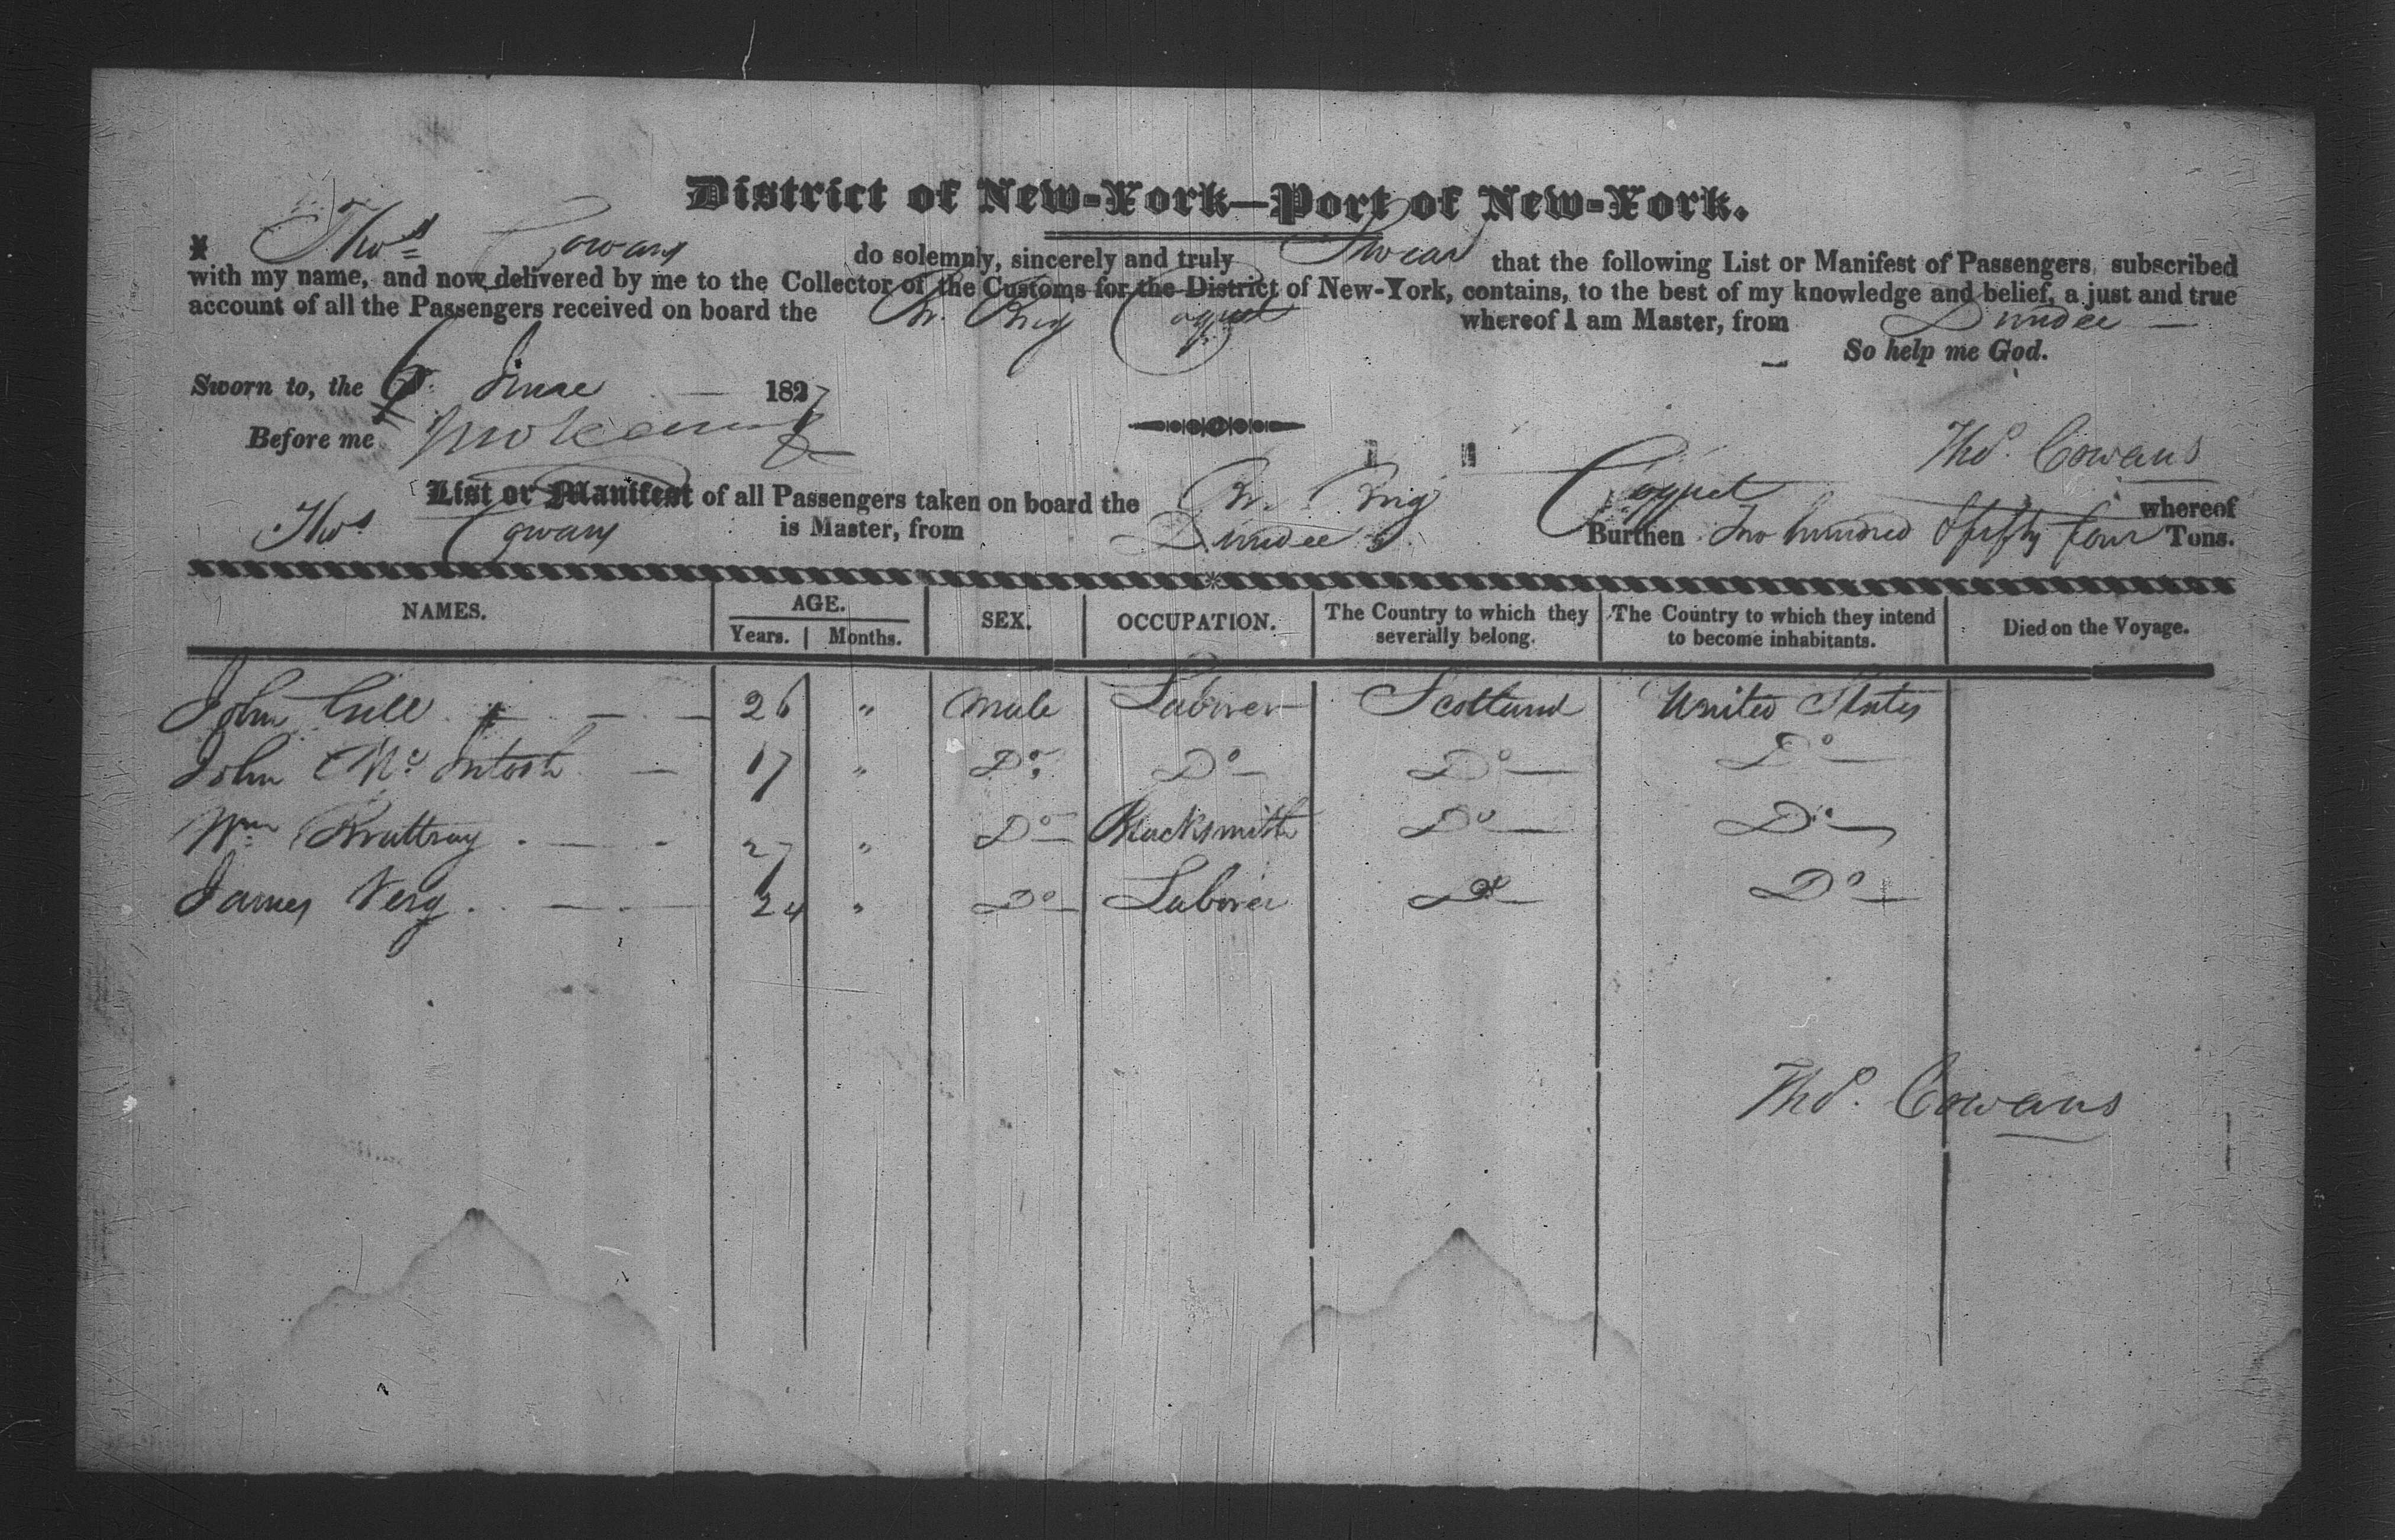 District of New-York—Port of New-York.
I Thos Cowans do solemnly, sincerely and truly Swear that the following List or Manifest of Passengers, subscribed
with my name, and now delivered by me to the Collector of the Customs for the District of New-York, contains, to the best of my knowledge and belief, a just and true
account of all the Passengers received on board the Br. Brig Coquet whereof I am Master, from Dundee —
So help me God.
Sworn to, the 6 June — 1827
Before me
Thos. Cowans
List or Manifest of all Passengers taken on board the Br. Brig Coquet whereof
Thos Cowans is Master, from Dundee Burthen Two hundred & fifty four Tons.
NAMES. AGE. SEX. OCCUPATION. The Country to which they severally belong. The Country to which they intend to become inhabitants. Died on the Voyage.
Years. Months.
John Gill 26 " Male Laborer Scotland United States
John Mc Intosh 17 " Do Do Do Do
Wm Rattray 27 " Do Blacksmith Do Do
James 24 " Do Laborer Do Do
Thos. Cowans